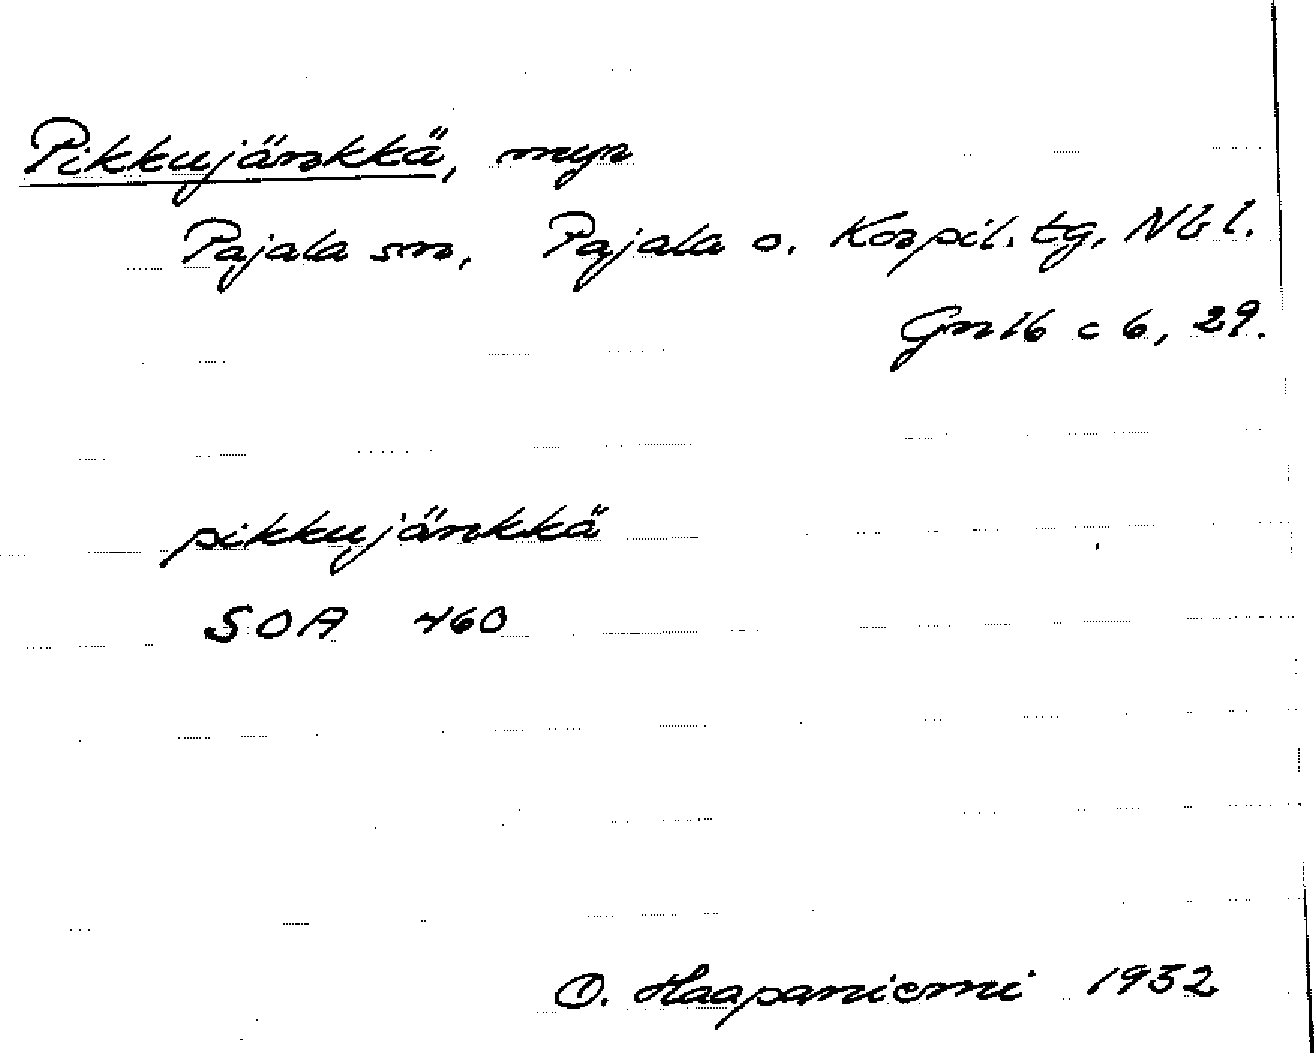 Pikkujänkkä, myr
Pajala sn, Pajala o. Korpil. tg, Nb l.
Gnlb c 6, 29.
pikkujänkkä
SOA 460
O. Haapaniemi 1932